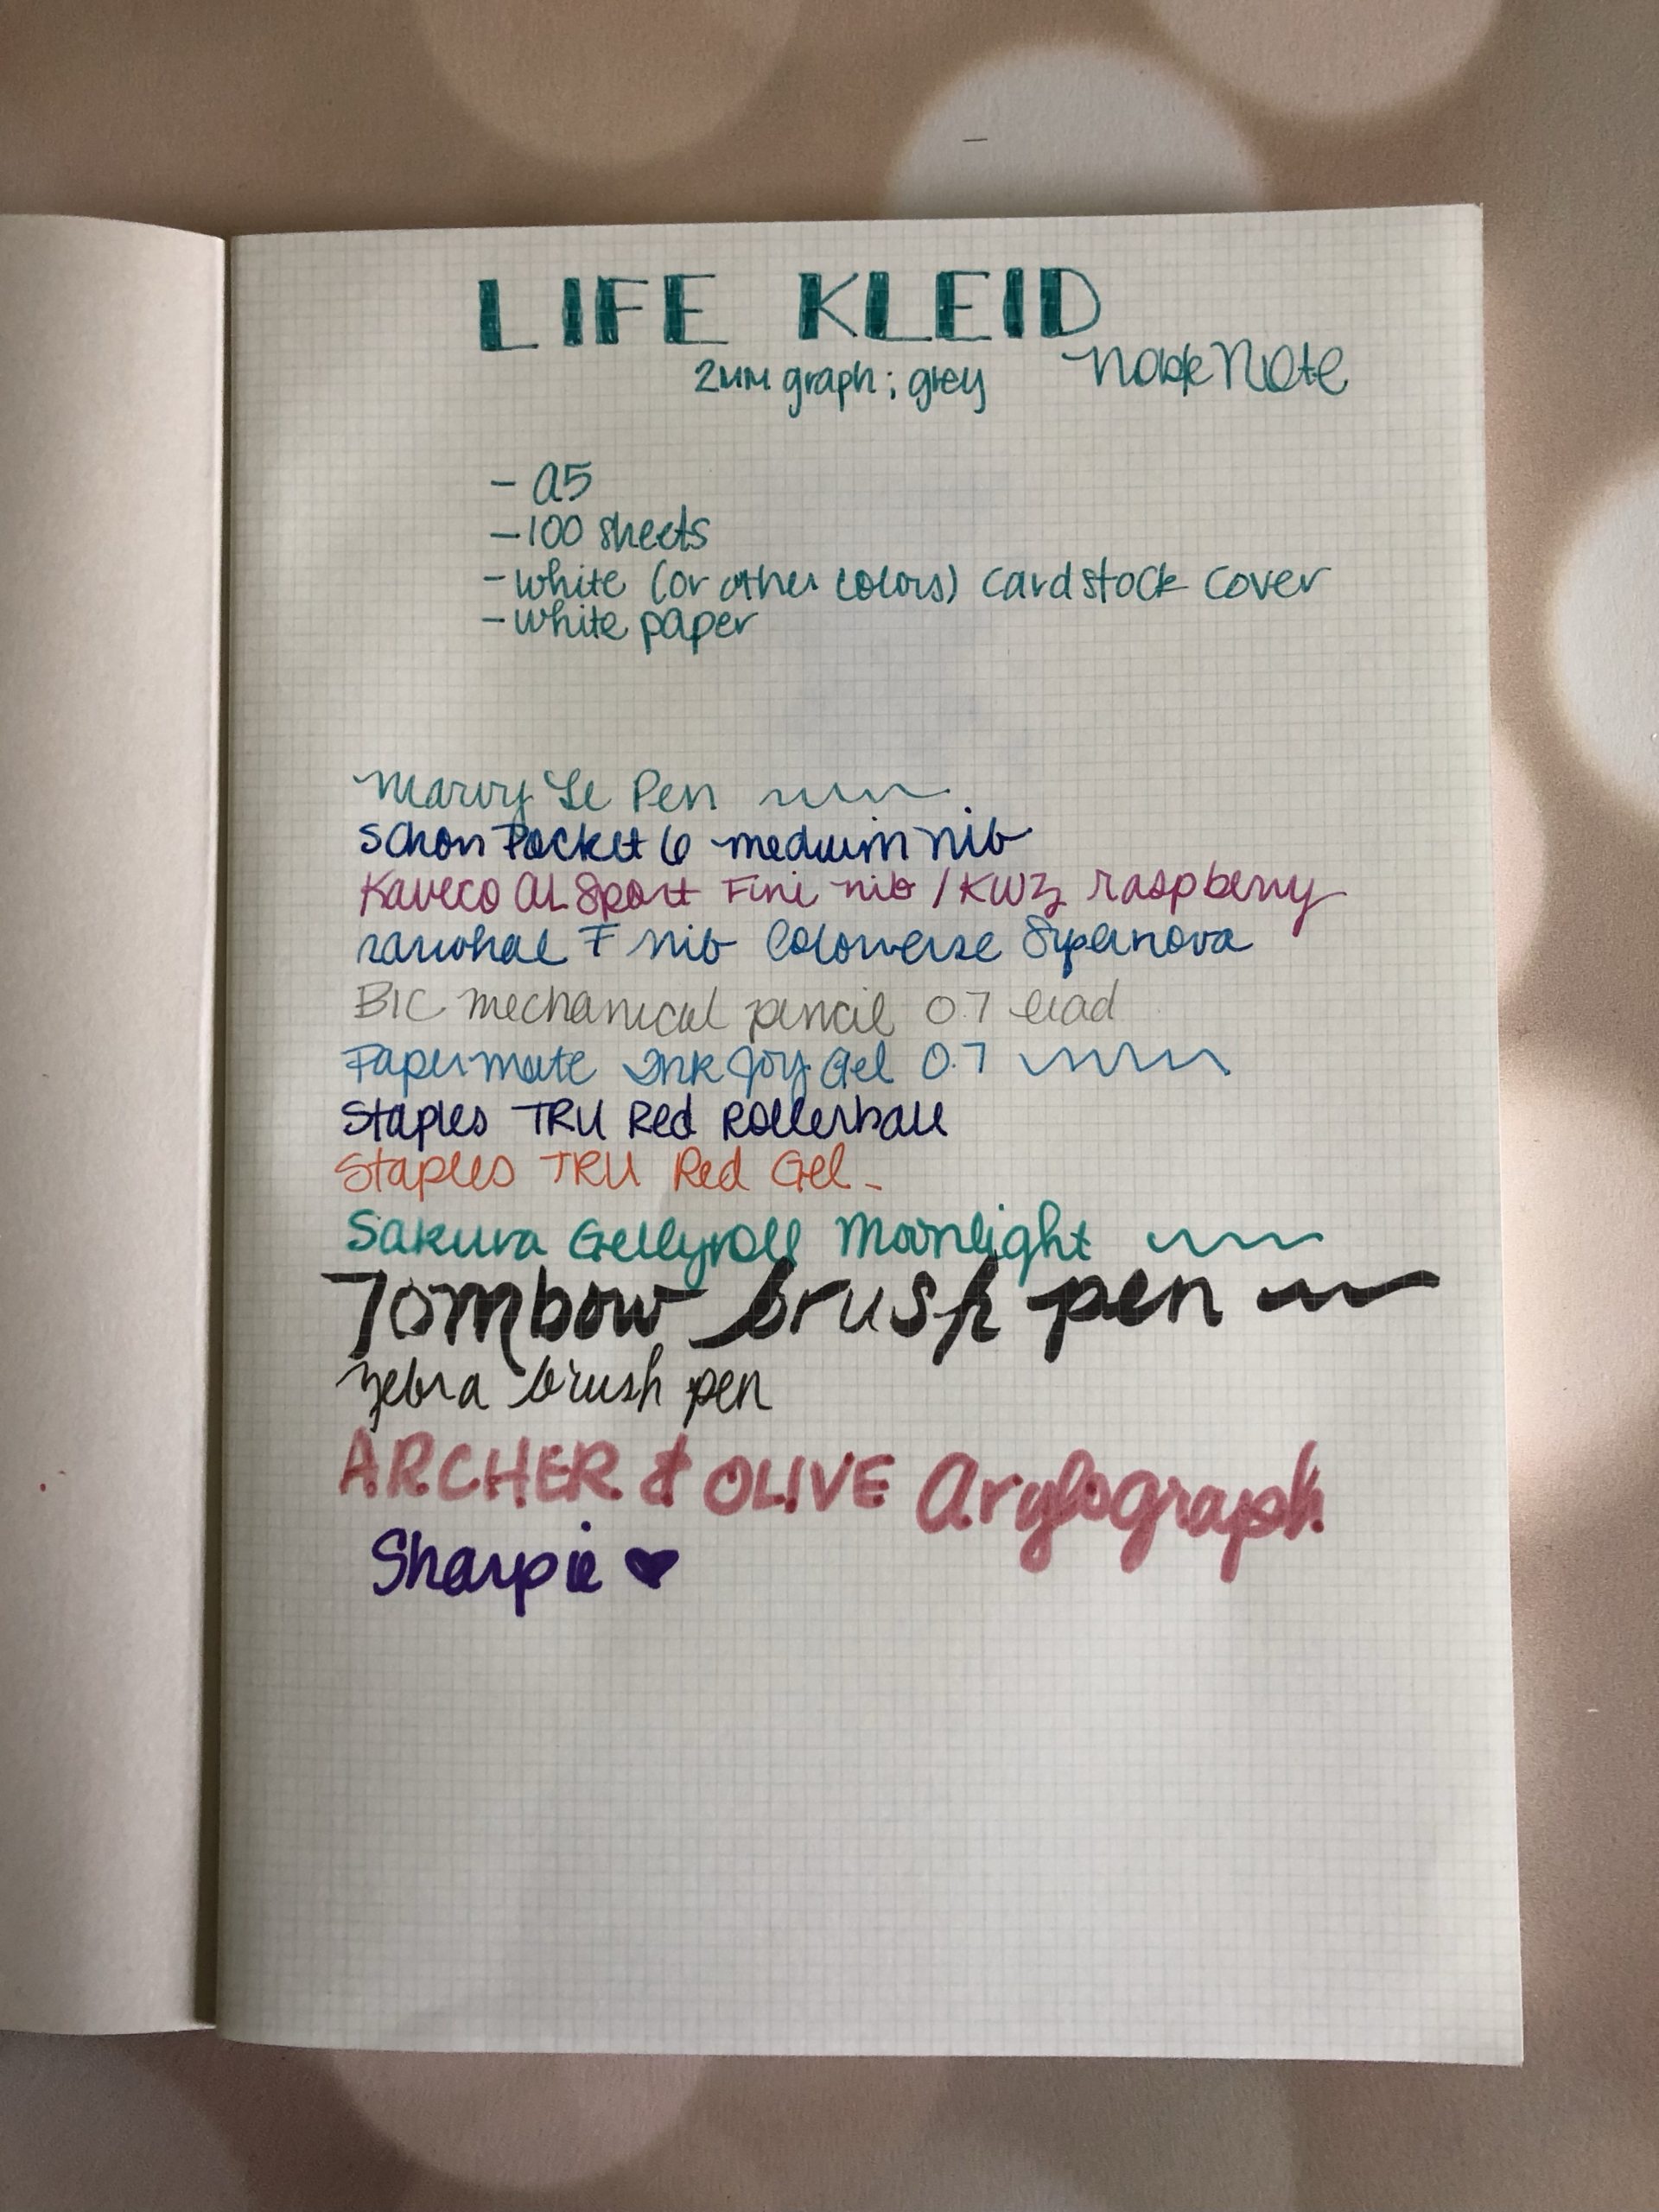 LIFE KLEID
2mm graph; grey Noble Note
- A5
- 100 sheets
- white (or other colors) cardstock cover
- white paper
Marvy Le Pen
Schon Pocket 6 medium nib
Kaveco AL Sport Fine nib / KWZ raspberry
F nib Colorverse Supernova
BIC mechanical pencil 0.7 lead
Papermate InkJoy Gel 0.7
Staples TRU Red Rollerball
Staples TRU Red Gel
Sakura Gellyroll Moonlight
Tombow brush pen
Zebra brush pen
ARCHER & OLIVE
Sharpie ♥